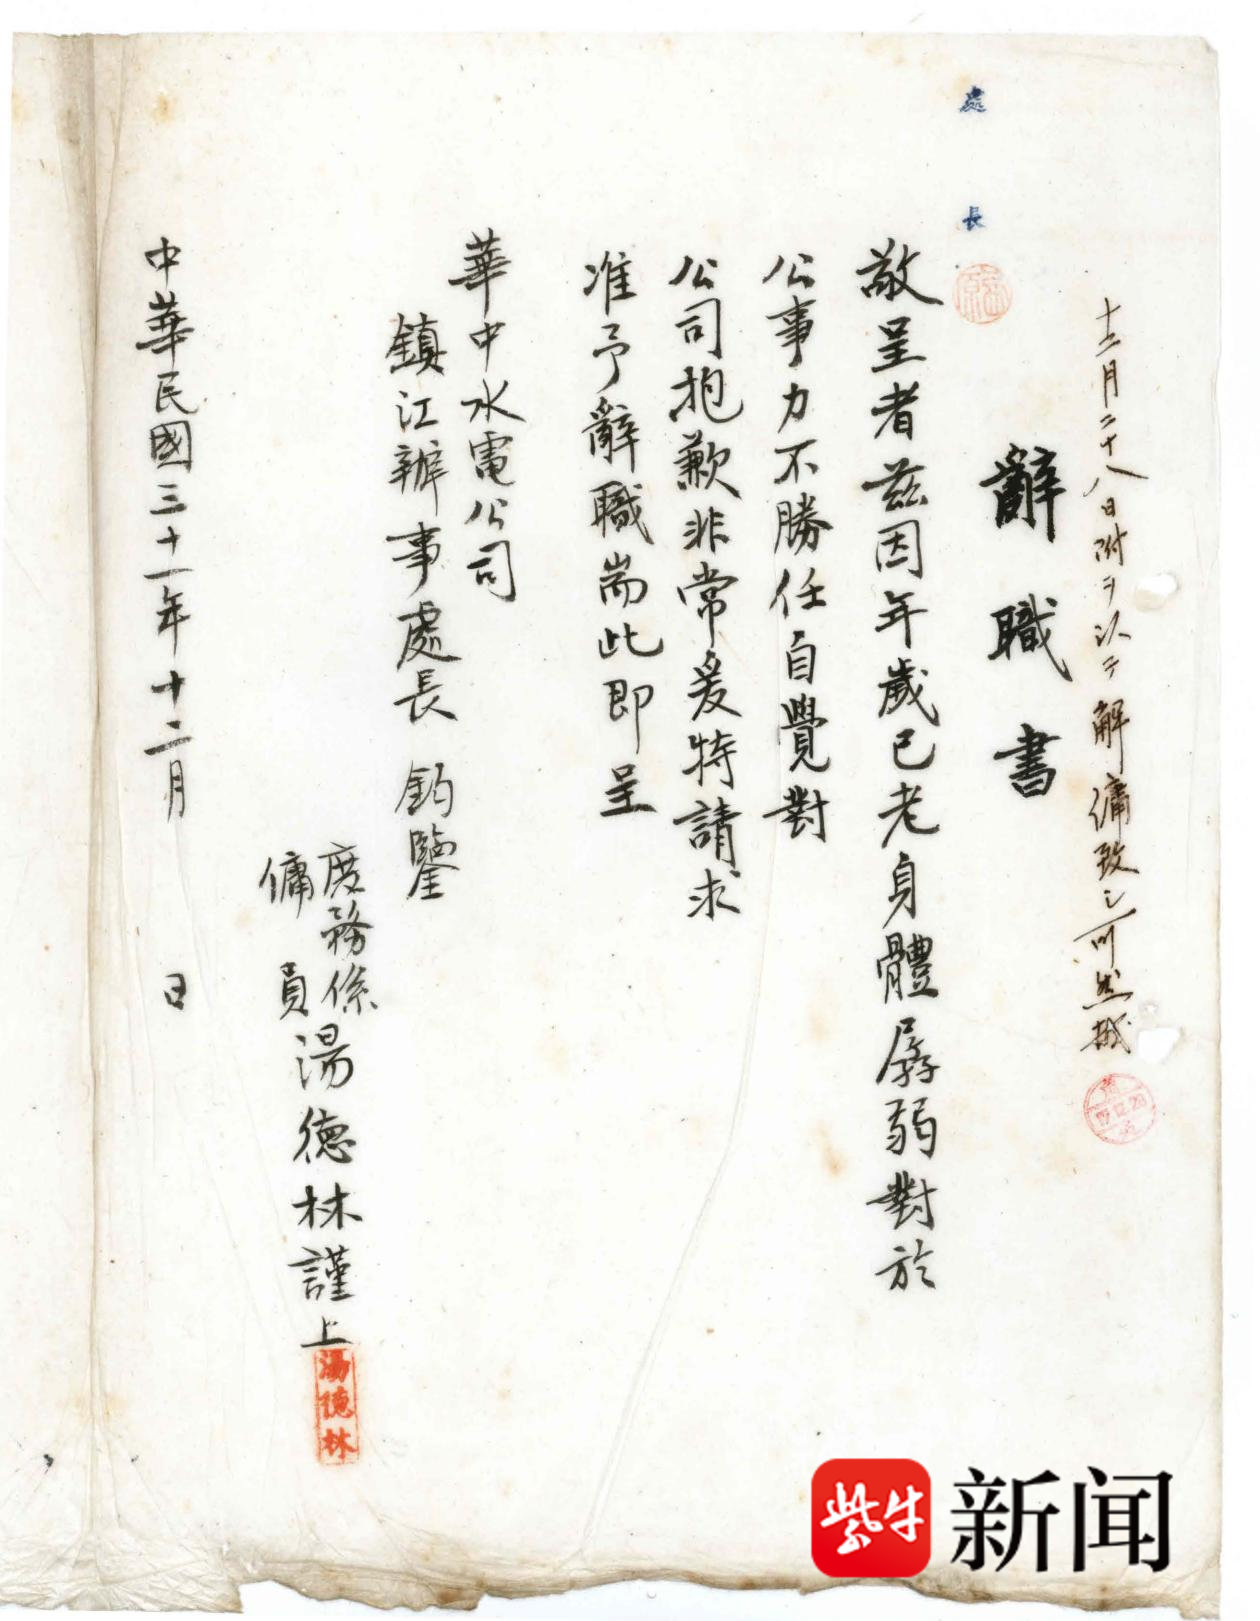 十二月二十八日附ヲ以テ解傭致シ可然哉
17.12.28
辭職書
處長
敬呈者茲因年歲已老身體孱弱對於
公事力不勝任自覺對
公司抱歉非常爰特請求
准予辭職耑此即呈
華中水電公司
鎮江辦事處長 鈞鑒
庶務係
傭員
湯德林謹上
湯德林
中華民國三十一年十二月 日
紫牛
新闻